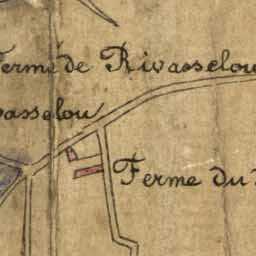 Ferme de Rivasselou
vasselou
Ferme du